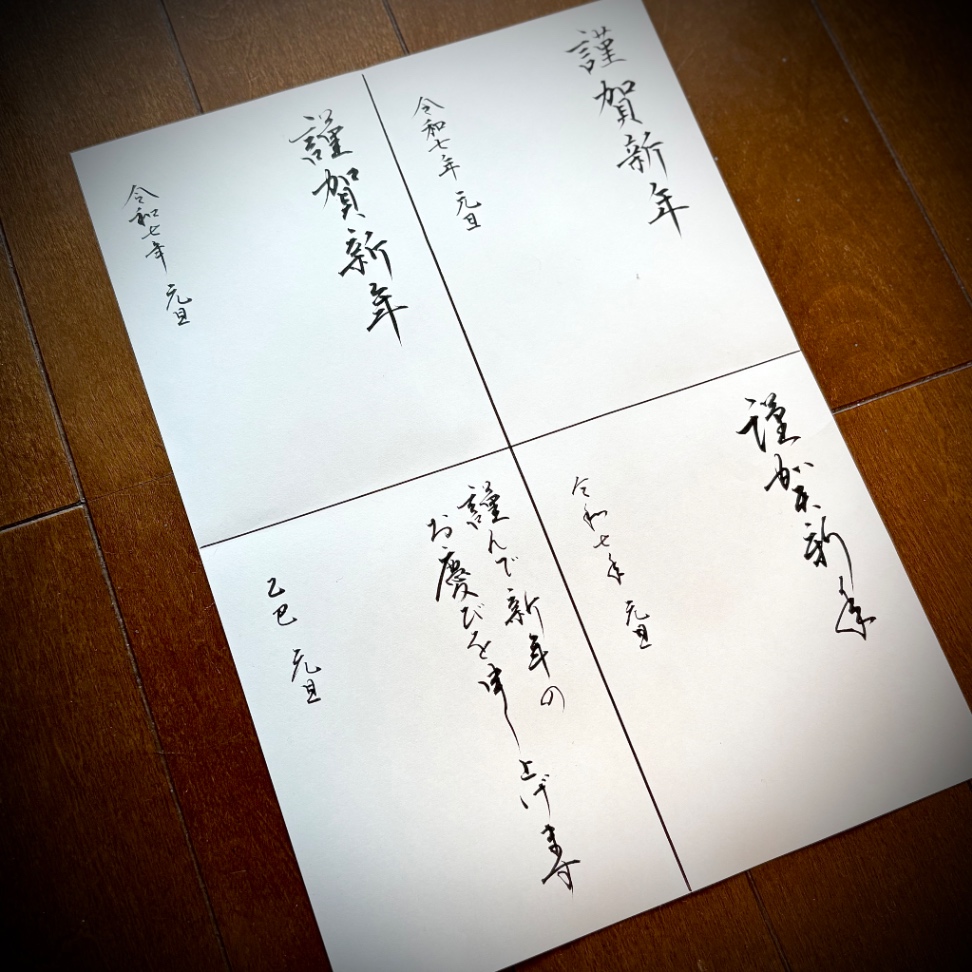 謹賀新年
令和七年 元旦
謹賀新年
令和七年 元旦
謹賀新年
令和七年 元旦
謹んで新年の
お慶びを申し上げます
乙巳 元旦